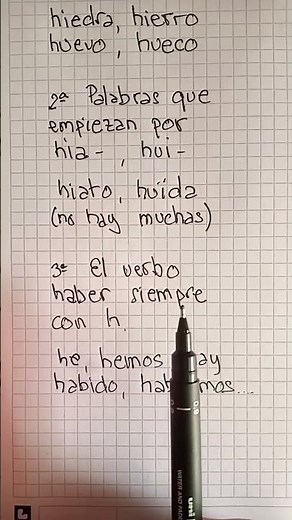 hiedra, hierro
huevo, hueco
2ª Palabras que
empiezan por
hia-, hui-
hiato, huida
(no hay muchas)
3ª El verbo
haber siempre
con h.
he, hemos
habido,
0.8
uni
WATER AND FADE